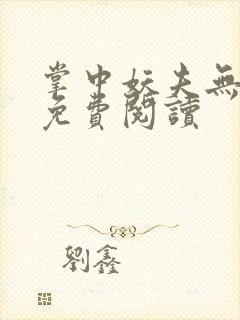 掌中妖夫無
免費閱讀
劉鑫